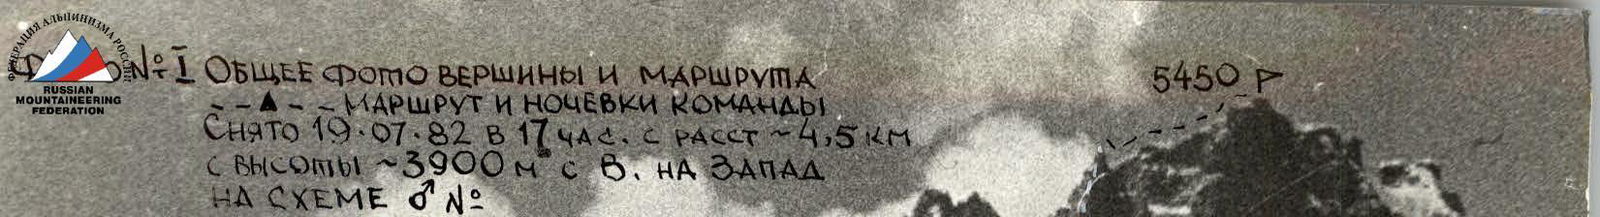 ФЕДЕРАЦИЯ АЛЬПИНИЗМА РОССИИ
RUSSIAN
MOUNTAINEERING
FEDERATION
ФОТО №I ОБЩЕЕ ФОТО ВЕРШИНЫ И МАРШРУТА
--▲-- МАРШРУТ И НОЧЕВКИ КОМАНДЫ
СНЯТО 19.07.82 В 17 ЧАС. С РАССТ ~4,5 КМ
С ВЫСОТЫ ~3900 М С В. НА ЗАПАД
НА СХЕМЕ ♂ №
5450